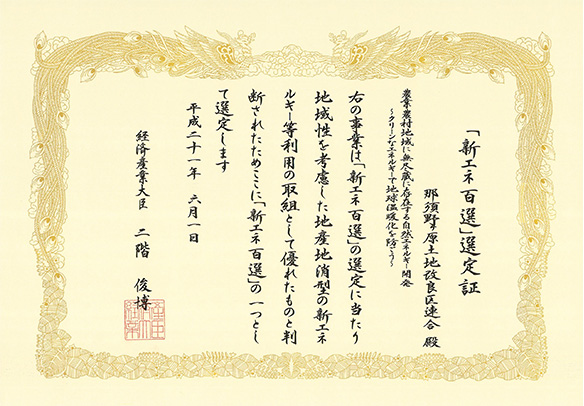 「新エネ百選」選定証
那須野ヶ原土地改良区連合 殿
農業農村地域に無尽蔵に存在する自然エネルギー開発
～クリーンなエネルギーで地球温暖化を防ごう～
右の事業は「新エネ百選」の選定に当たり
地域性を考慮した地産地消型の新エネ
ルギー等利用の取組として優れたものと判
断されたためここに「新エネ百選」の一つとし
て選定します
平成二十一年 六月一日
経済産業大臣 二階 俊博